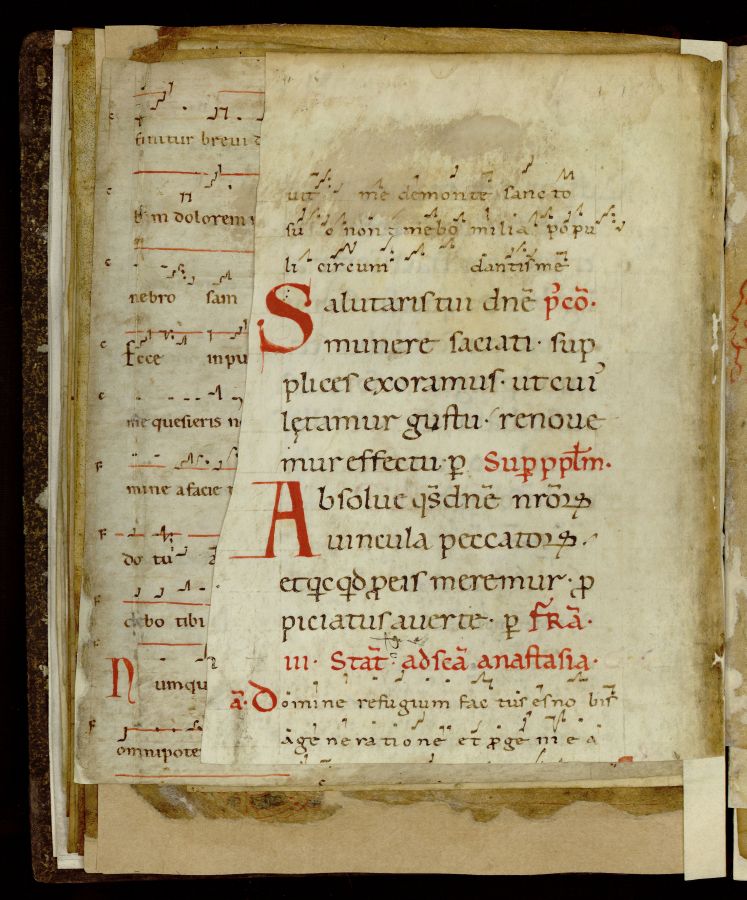 finitur brevi
m dolorem
nebro sam
Ecce inpu
me quesieris n
mine a facie
do tu
debo tibi
Numqu
omnipote
me de monte sancto
su o non timebo milia popu
li circum dantis me
Salutaris tui dnē p̄cō·
munere saciati· sup
plices exoramus· ut cui᾿
lętamur gustu· renove
mur effectu· ꝑ Sup ppłm·
Absolve qs̄ dnē nr̄oꝝ
vincula peccatoꝝ·
et qͥcqͥd ꝓ eis meremur· ꝓ
piciatus averte· ꝑ FR̄A·
III· Stat̄· ad scā anastasia·
ā· Domine refugium factus es no bis
a ge neratione et ꝓgenie a